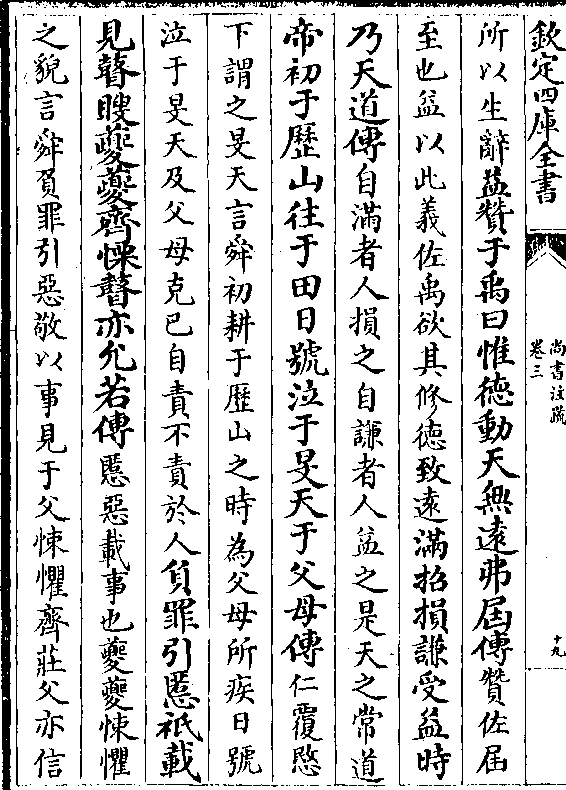 欽定四庫全書
尚書注疏
卷三
十九
所以生辭益贊于禹曰惟德動天無遠弗屆傳贊佐屆
至也益以此義佐禹欲其修德致遠滿招損謙受益時
乃天道傳自滿者人損之自謙者人益之是天之常道
帝初于歷山往于田日號泣于旻天于父母傳仁覆愍
下謂之旻天言舜初耕于歷山之時為父母所疾日號
泣于旻天及父母克己自責不責於人負罪引慝祗載
見瞽瞍夔夔齊慄瞽亦允若傳慝惡載事也夔夔悚懼
之貌言舜負罪引惡敬以事見于父悚懼齊莊父亦信